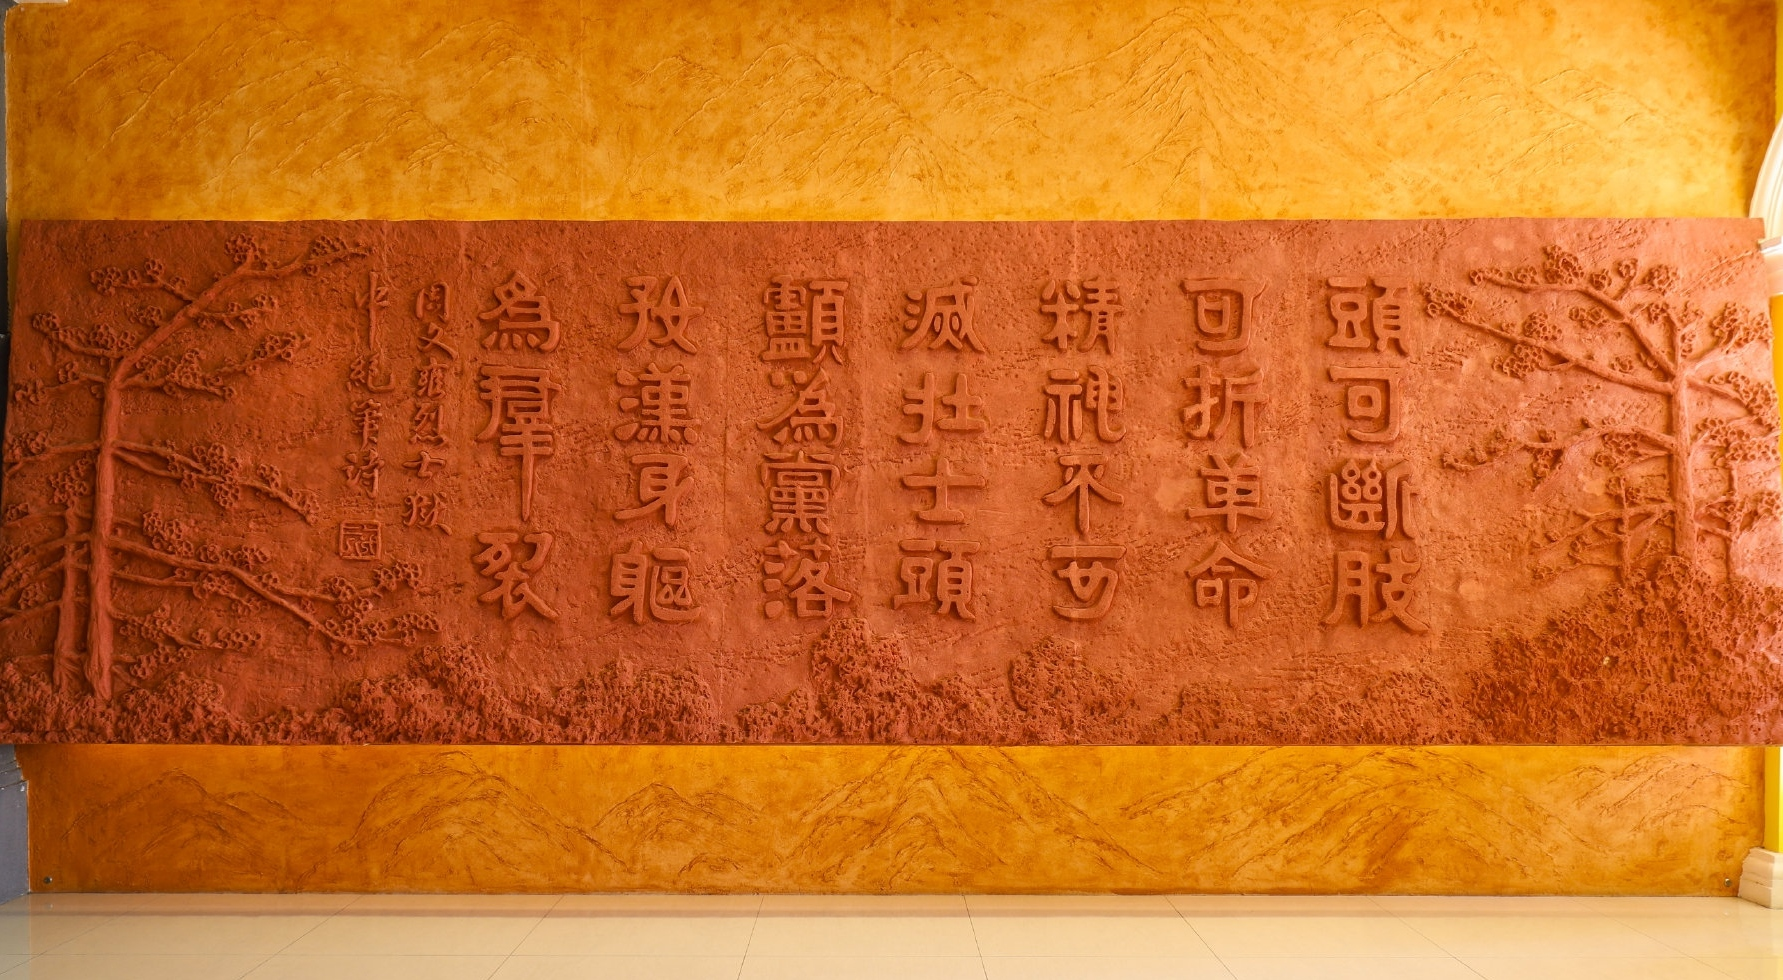 頭可斷肢
可折革命
精神不可
滅壯士頭
顱為黨落
好漢身軀
為羣裂
周文雍烈士獄
中絕筆詩